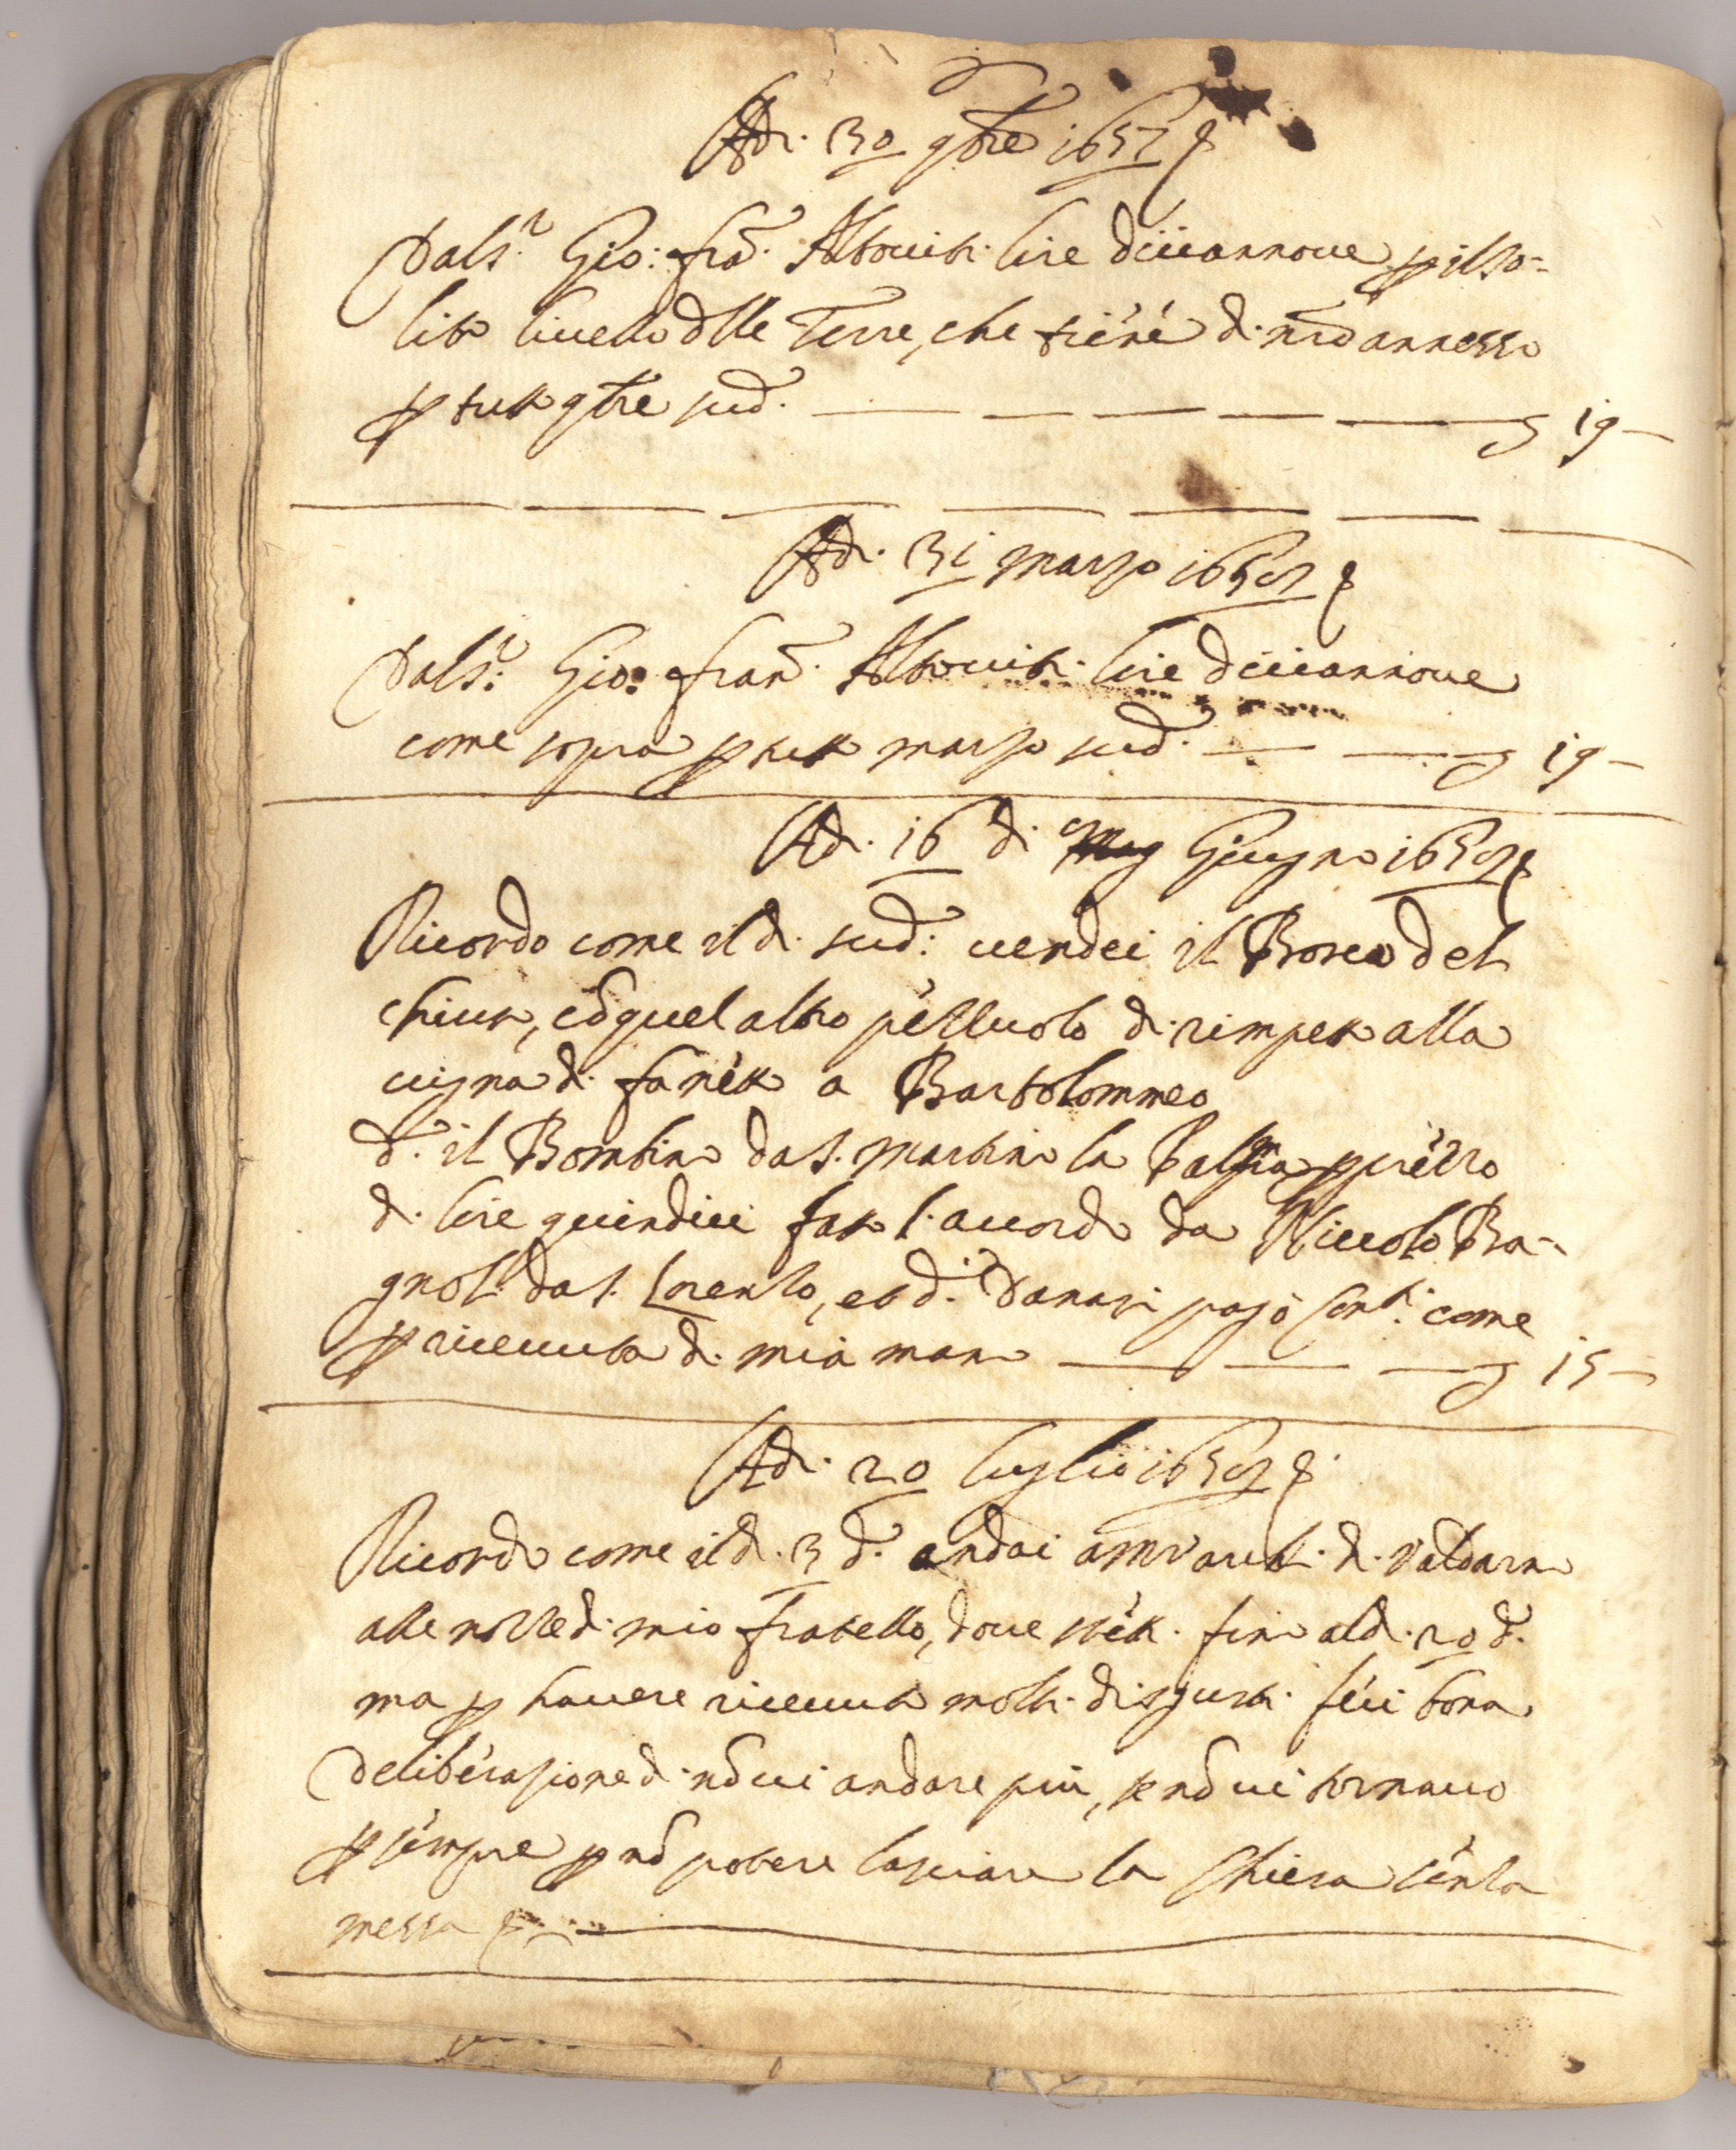 Adì. 30 9bre 1657
Dal S.r Gio: Fra. Altouiti. lire diciannoue p il so=
lito liuello dlle Terre, che tiene di nro annesso
p tutto 9bre sud. 19 -
Adì. 31 marzo 1658
Dal S.r Gio: Fran. Altouiti. lire diciannoue
come sopra p tutto marzo sud. 19 -
Adì. 16 di Mag Giugno 1658
Ricordo come il dì. sud: uendei il Bosco del
chiuso, e quel altro pezzuolo di rimpetto alla
uigna di. a Bartolommeo
d. il Bombino da S. Martino la Palma p prezzo
di. lire quindici fatto l'accordo da Niccolo Ba-
gnoli da S. Lorenzo, et d. danari pagò cont.i come
p riceuuta di. mia mano 15 -
Adì. 20 luglio 1658
Ricordo come il dì. 3 d. andai a Mvarchi. di. Valdarno
alle nozze di. mio fratello, doue stetti. fino al dì. 20 d.
ma p hauere riceuuti molti. disgusti. feci bona
deliberazione di. nō ui andare più, se nō ui tornauo
p sempre p nō potere lasciare la chiesa senza
messa